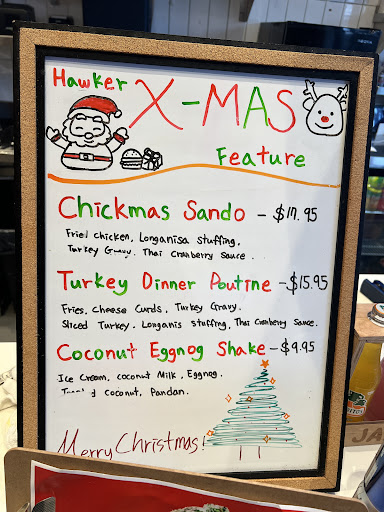 Hawker
X-MAS
Feature
Chickmas Sando - $17.95
Fried chicken, Longanisa stuffing,
Turkey Gravy, Thai Cranberry Sauce.
Turkey Dinner Poutine - $15.95
Fries, Cheese Curds, Turkey Gravy.
Sliced Turkey. Longanis stuffing, Thai Cranberry Sauce.
Coconut Eggnog Shake - $9.95
Ice Cream, coconut Milk, Eggnog.
Coconut, Pandan.
Merry Christmas!
JA